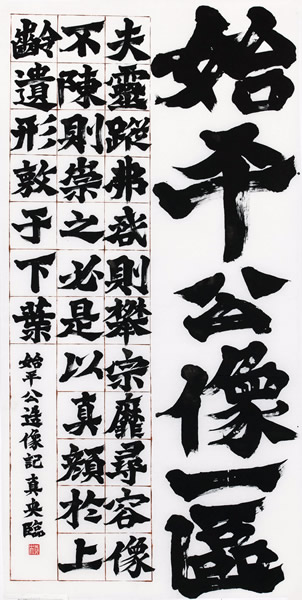 始平公像一區
夫靈蹤弗啓則攀宗靡尋容像
不陳則崇之必是以真顔於上
齡遺形敷于下葉
始平公造像記 真央臨